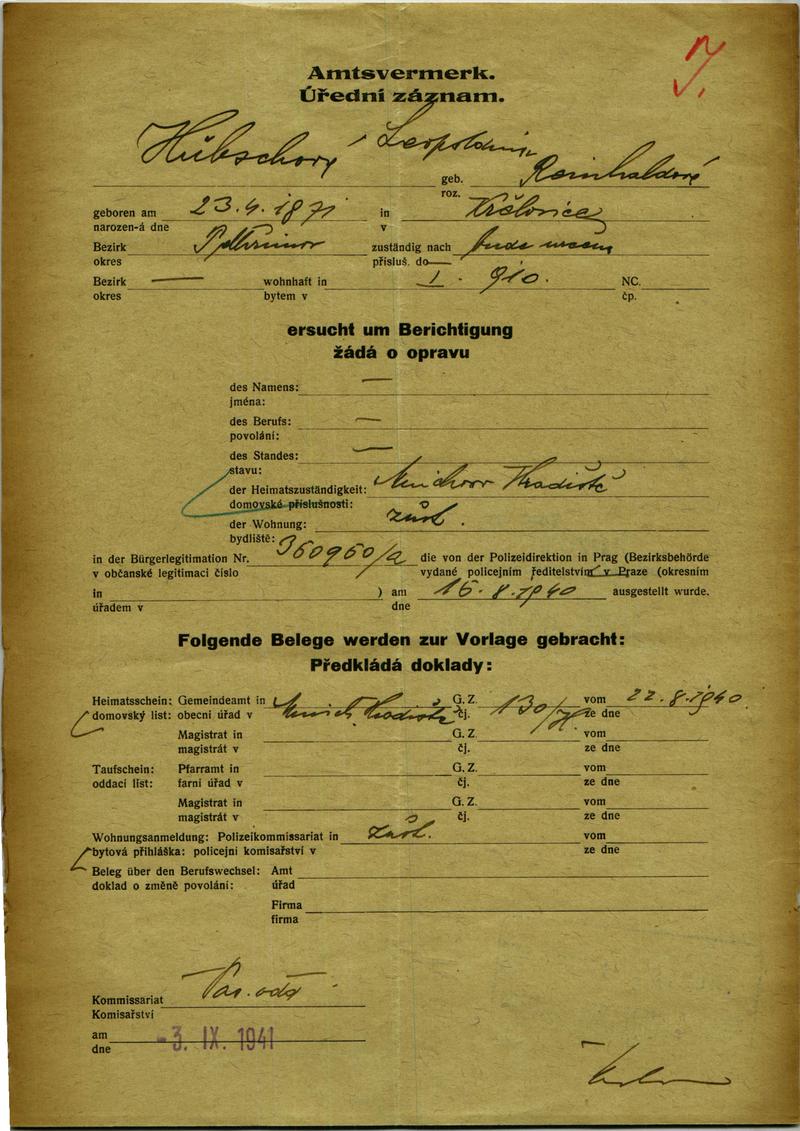 7.
Amtsvermerk.
Úřední záznam.
Hübschová Leopoldina
geb. Reinhaldová
roz.
geboren am 23.4.1871 in
narozen-á dne v
Bezirk zuständig nach bude určeno
okres přísluš. do
Bezirk — wohnhaft in I. 910. NC.
okres bytem v čp.
ersucht um Berichtigung
žádá o opravu
des Namens: —
jména:
des Berufs: —
povolání:
des Standes: —
stavu:
der Heimatszuständigkeit: Mnichovo Hradiště
domovské příslušnosti:
der Wohnung: zůst.
bydliště:
in der Bürgerlegitimation Nr. 360960/a die von der Polizeidirektion in Prag (Bezirksbehörde
v občanské legitimaci číslo vydané policejním ředitelstvím v Praze (okresním
in ) am 16.8.1940 ausgestellt wurde.
úřadem v dne
Folgende Belege werden zur Vorlage gebracht:
Předkládá doklady:
Heimatsschein: Gemeindeamt in Mnich. Hradiště G. Z. 130/ vom 22.8.1940
domovský list: obecní úřad v čj. ze dne
Magistrat in G. Z. vom
magistrát v čj. ze dne
Taufschein: Pfarramt in G. Z. vom
oddací list: farní úřad v čj. ze dne
Magistrat in G. Z. vom
magistrát v čj. ze dne
Wohnungsanmeldung: Polizeikommissariat in zůst. vom
bytová přihláška: policejní komisařství v ze dne
Beleg über den Berufswechsel: Amt
doklad o změně povolání: úřad
Firma
firma
Kommissariat Pas. odd.
Komisařství
am -3. IX. 1941
dne